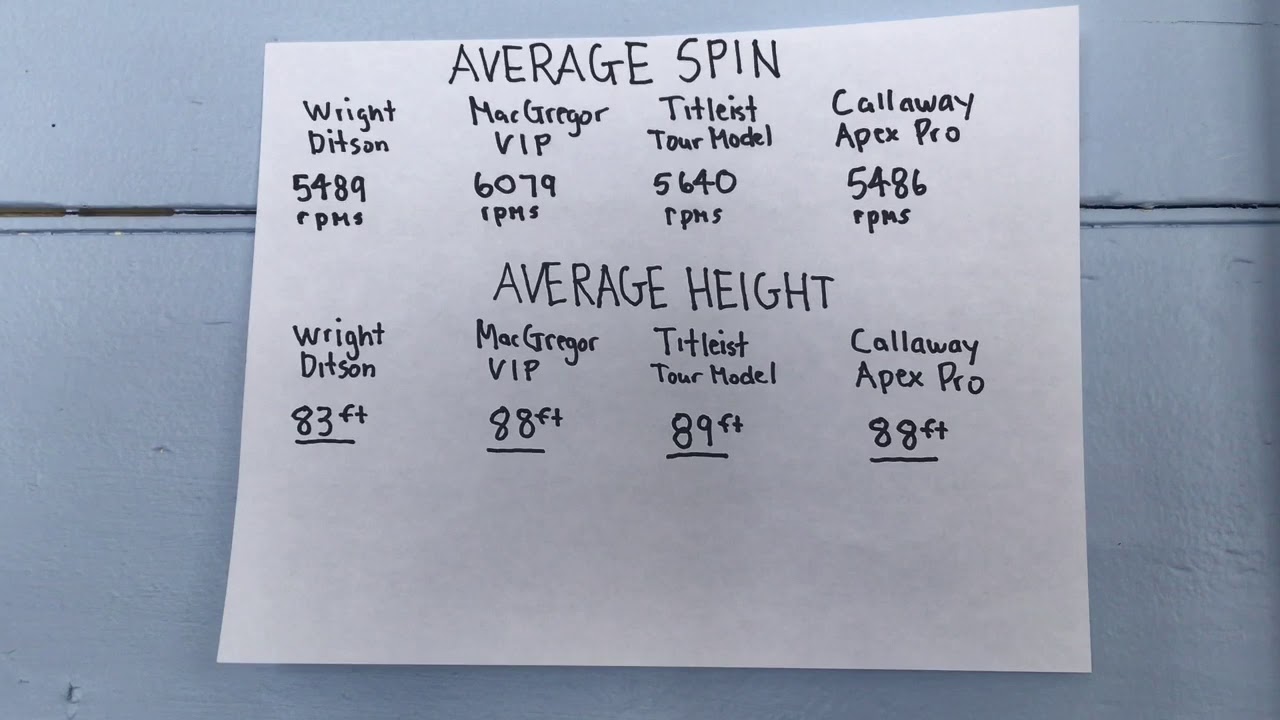 AVERAGE SPIN
Wright MacGregor Titleist Callaway
Ditson VIP Tour Model Apex Pro
5489 6079 5640 5486
rpms rpms rpms rpms
AVERAGE HEIGHT
Wright MacGregor Titleist Callaway
Ditson VIP Tour Model Apex Pro
83ft 88ft 89ft 88ft